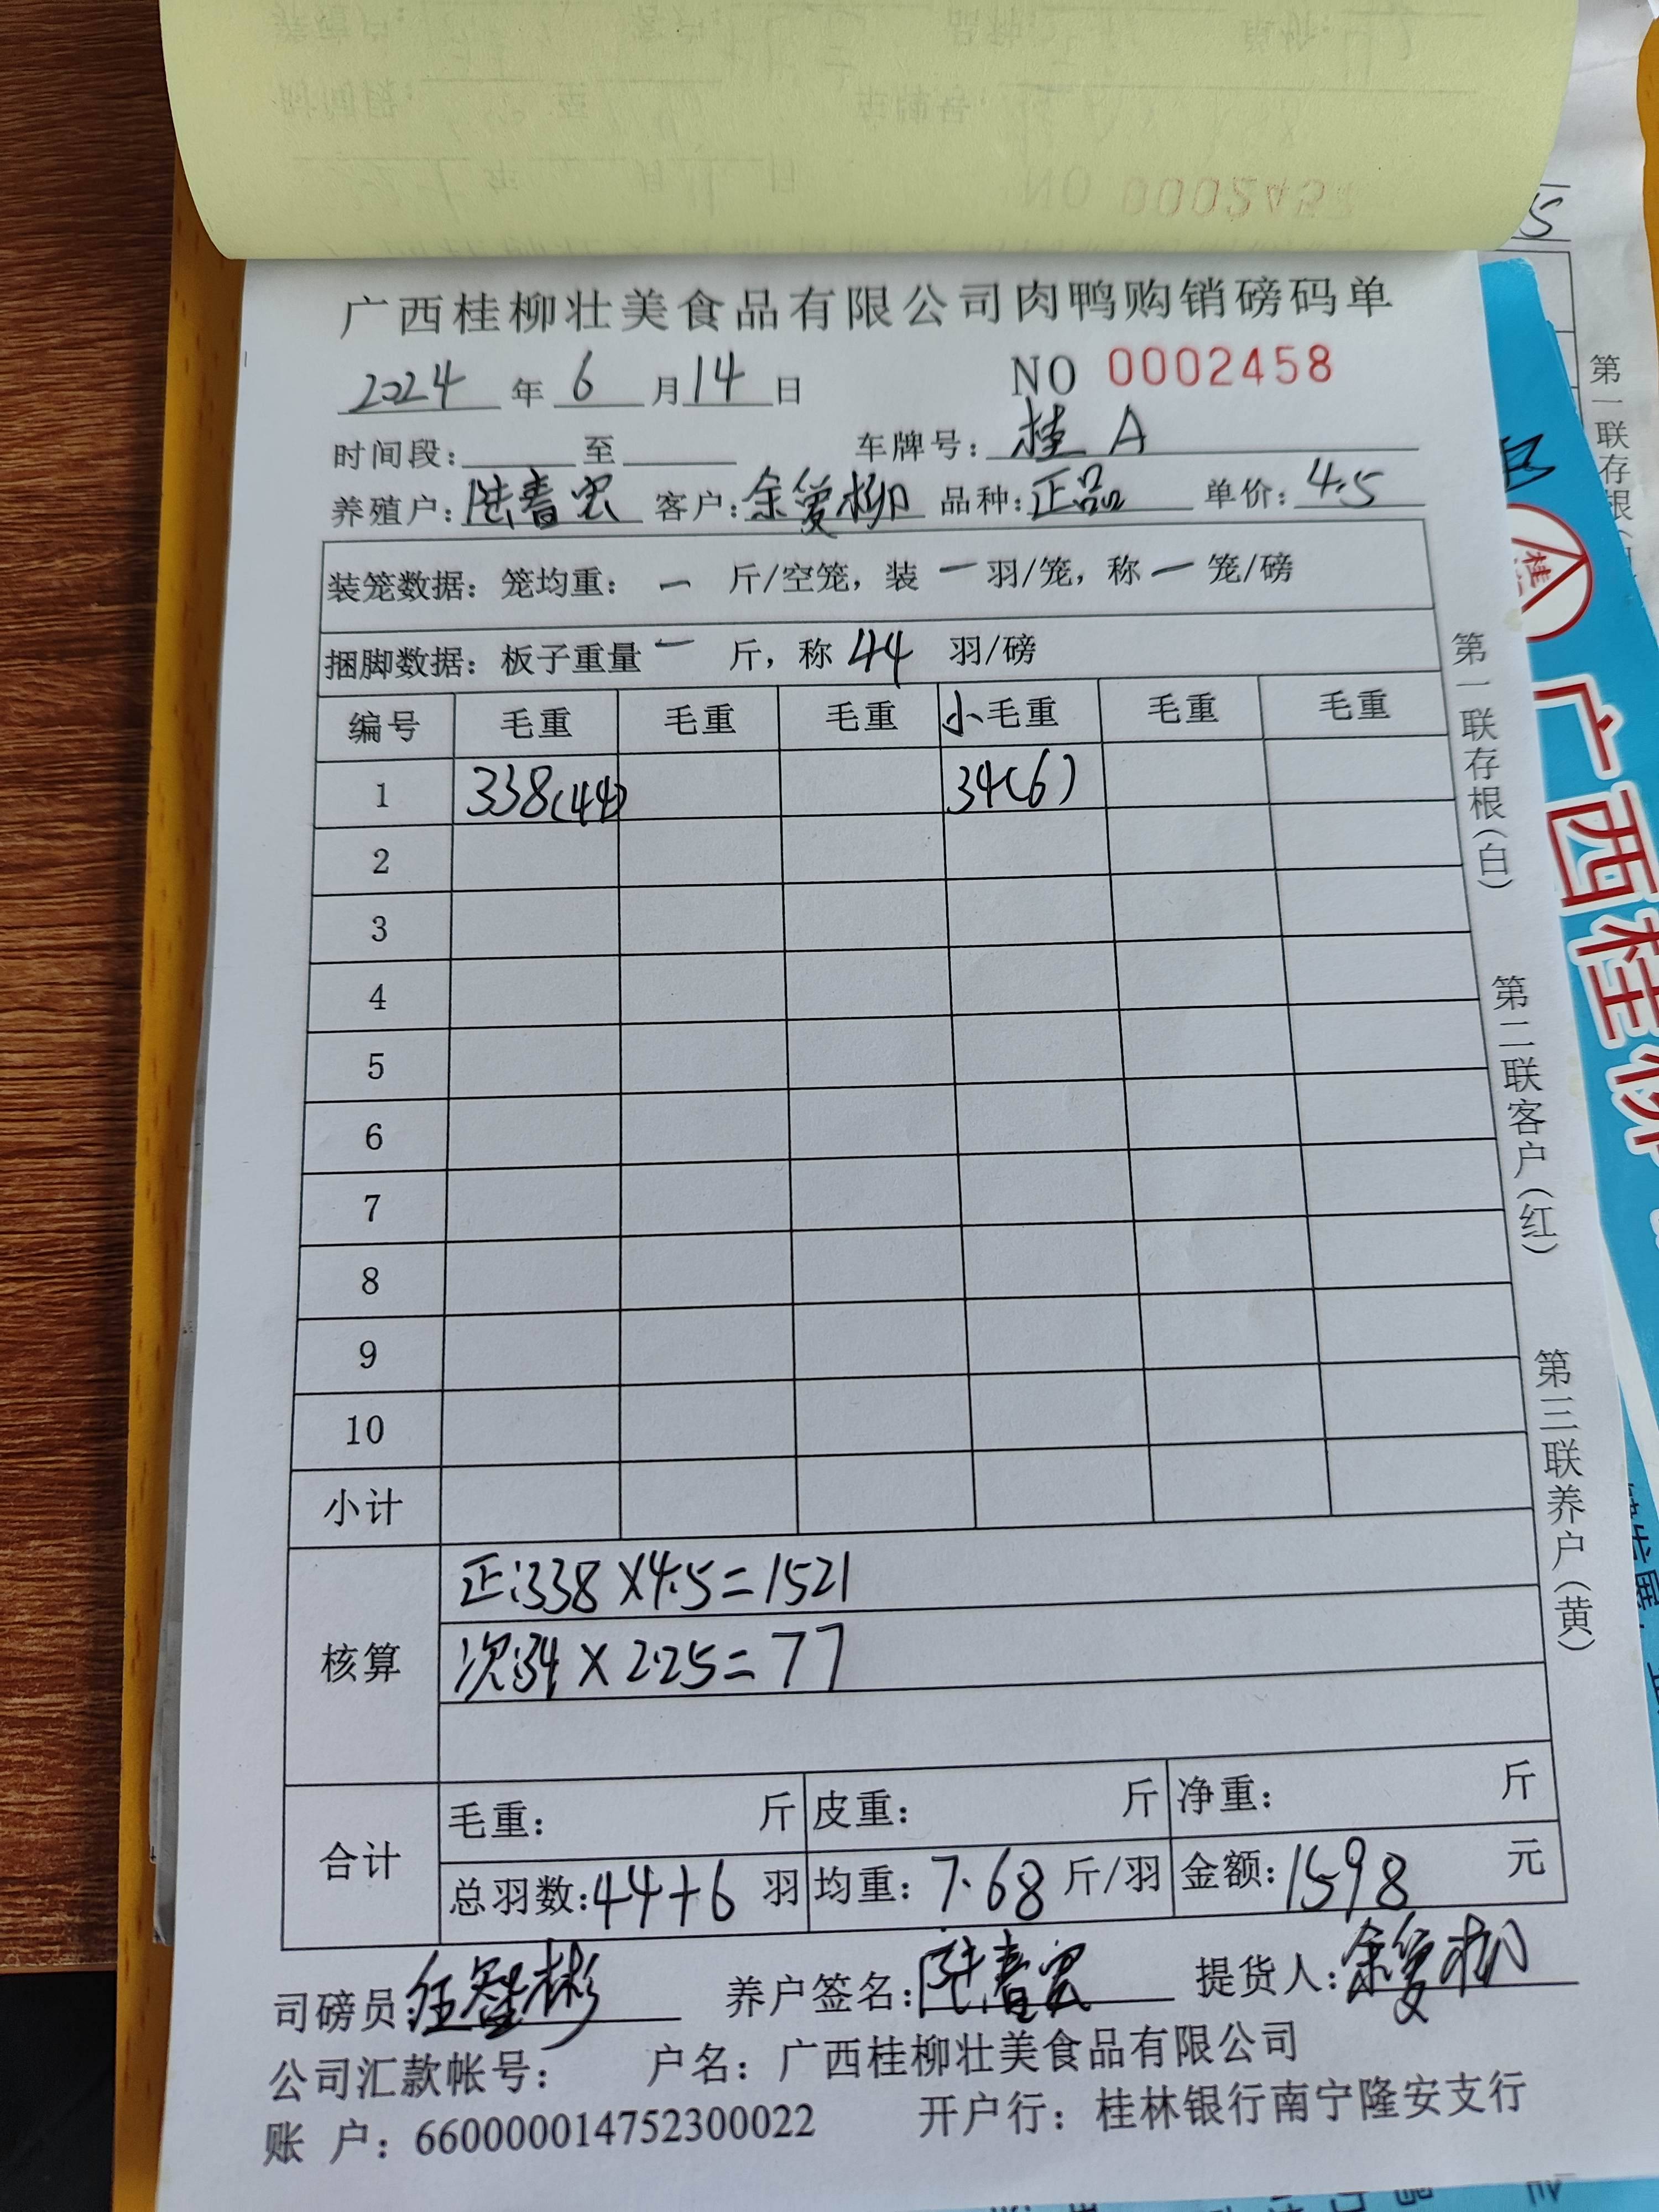 广西桂柳壮美食品有限公司肉鸭购销磅码单
2024年6月14日 NO 0002458
时间段： 至 车牌号：桂A
养殖户：陆春宏 客户：余爱柳 品种：正品 单价：4.5
装笼数据：笼均重：一 斤/空笼，装一羽/笼，称一笼/磅
捆脚数据：板子重量一 斤，称44 羽/磅
编号 毛重 毛重 毛重 小毛重 毛重 毛重
1 338(44) 34(6)
2
3
4
5
6
7
8
9
10
小计
核算
正:338×4.5=1521
次:34×2.25=77
合计
毛重： 斤 皮重： 斤 净重： 斤
总羽数:44+6 羽 均重：7.68 斤/羽 金额:1598 元
司磅员: 养户签名:陆春宏 提货人:余爱柳
公司汇款帐号： 户名：广西桂柳壮美食品有限公司
账 户：660000014752300022 开户行：桂林银行南宁隆安支行
第一联存根(白)
第二联客户(红)
第三联养户(黄)
第一联存根
广西桂